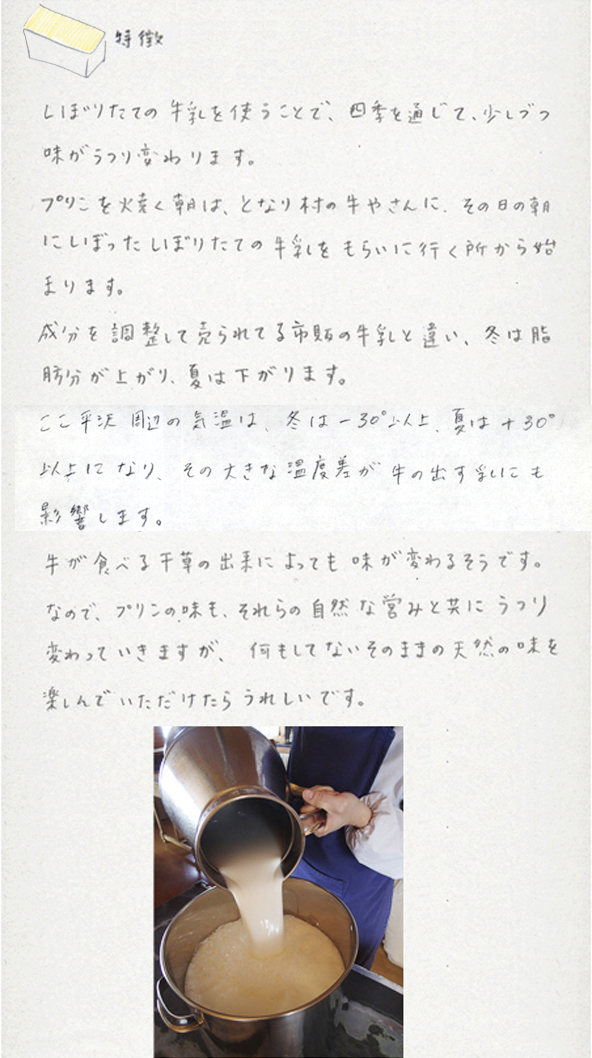 特徴
しぼりたての牛乳を使うことで、四季を通じて、少しづつ
味がうつり変わります。
プリンを焼く朝は、となり村の牛やさんに、その日の朝
にしぼったしぼりたての牛乳をもらいに行く所から始
まります。
成分を調整して売られてる市販の牛乳と違い、冬は脂
肪分が上がり、夏は下がります。
ここ平沢周辺の気温は、冬は-30°以上、夏は+30°
以上になり、その大きな温度差が牛の出す乳にも
影響します。
牛が食べる干草の出来によっても味が変わるそうです。
なので、プリンの味も、それらの自然な営みと共にうつり
変わっていきますが、何もしてないそのままの天然の味を
楽しんでいただけたらうれしいです。